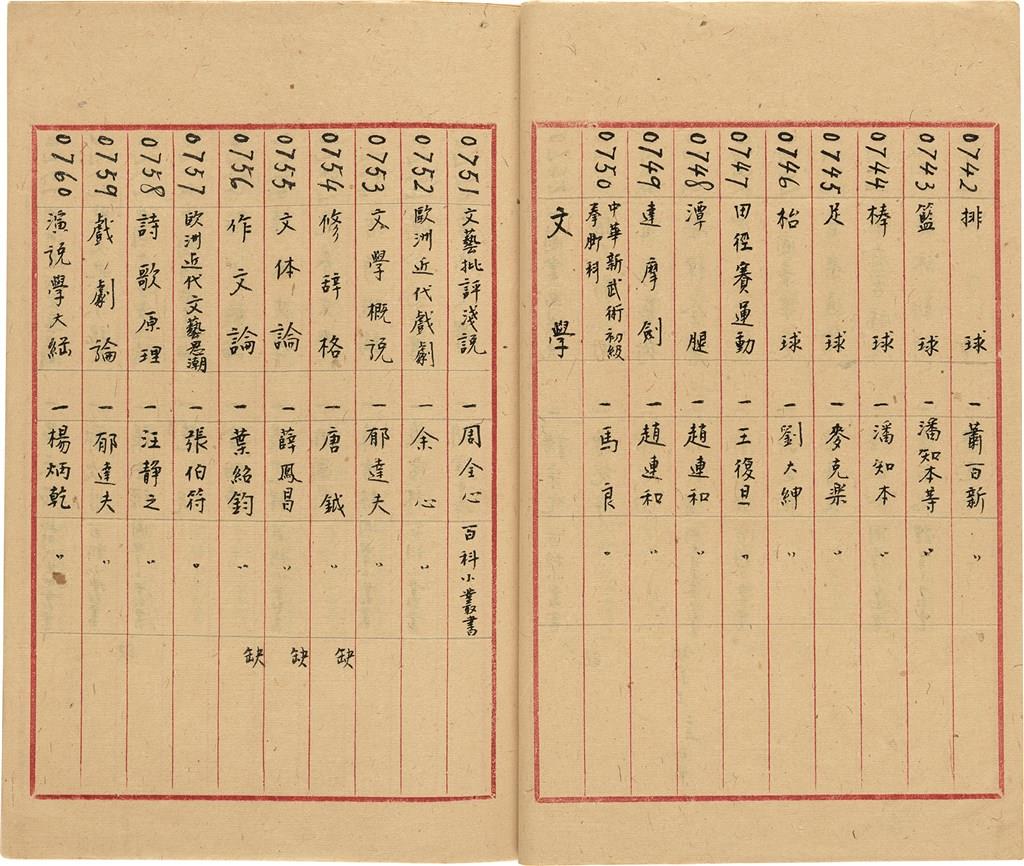 0742 排球 一 蕭百新 〃
0743 籃球 一 潘知本等 〃
0744 棒球 一 潘知本 〃
0745 足球 一 麥克樂 〃
0746 枱球 一 劉大紳 〃
0747 田徑賽運動 一 王復旦 〃
0748 潭腿 一 趙連和 〃
0749 達摩劍 一 趙連和 〃
0750 中華新武術初級拳脚科 一 馬良 〃
文學
0751 文藝批評淺説 一 周全心 百科小叢書
0752 歐洲近代戲劇 一 余心 〃
0753 文學概説 一 郁達夫 〃
0754 修辞格 一 唐鉞 〃 缺
0755 文体論 一 薛鳳昌 〃 缺
0756 作文論 一 葉紹鈞 〃 缺
0757 歐洲近代文藝思潮 一 張伯符 〃
0758 詩歌原理 一 汪静之 〃
0759 戲劇論 一 郁達夫 〃
0760 演説學大綱 一 楊炳乾 〃